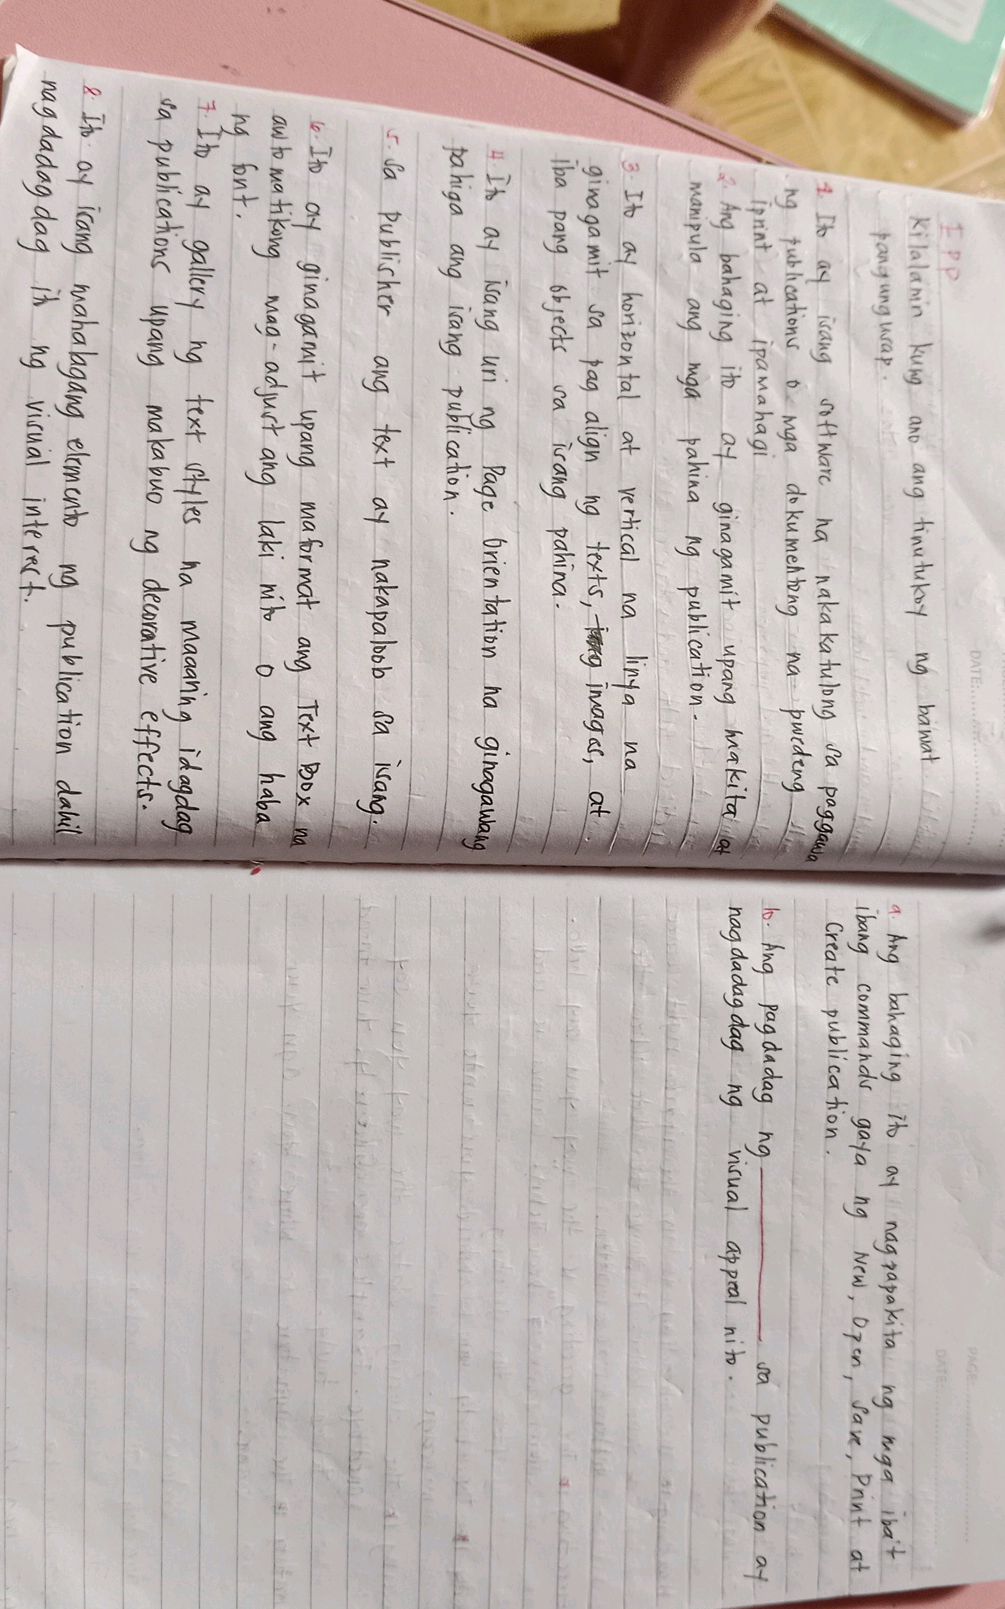 IPP
Kilalanin kung ano ang tinutukoy ng bawat
pangungusap.
1. Ito ay isang software na nakakatulong sa paggawa
ng publications o mga dokumentong na pwedeng
iprint at ipamahagi
2. Ang bahaging ito ay ginagamit upang makita at
manipula ang mga pahina ng publication.
3. Ito ay horizontal at vertical na linya na
ginagamit sa pag align ng texts, images, at
iba pang objects sa isang pahina.
4. Ito ay isang uri ng Page Orientation na ginagawang
pahiga ang isang publication.
5. Sa publisher ang text ay nakapaloob sa isang.
6. Ito ay ginagamit upang maformat ang Text Box na
awtomatikong mag-adjust ang laki nito o ang haba
ng font.
7. Ito ay gallery ng text styles na maaaring idagdag
sa publications upang makabuo ng decorative effects.
8. Ito ay isang mahalagang elemento ng publication dahil
nagdadagdag it ng visual interest.
DATE:
PAGE:
DATE:
9. Ang bahaging ito ay nagpapakita ng mga iba't
ibang commands gaya ng New, Open, Save, Print at
Create publication.
10. Ang pagdadag ng ________ sa publication ay
nagdadagdag ng visual appeal nito.